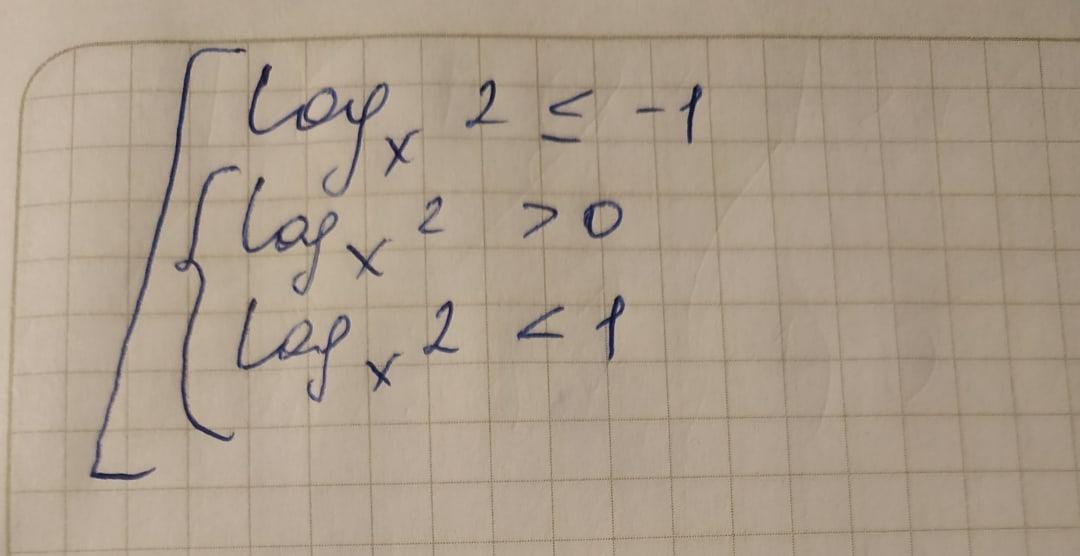 logₓ 2 ≤ -1
logₓ 2 > 0
logₓ 2 < 1